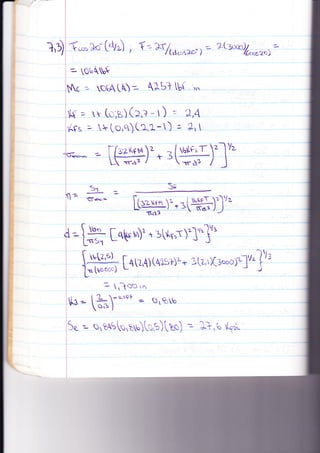 7,3) Fcos20° (d/2), F = 2T/(dcos20°) = 2(3000)/(6cos20) =
= 1064 lbf
Mc = 1064(4) = 4257 lbf in
Kf = 1+(0,8)(2,7-1) = 2,4
Kfs = 1+(0,9)(2,2-1) = 2,1
= [(32KfM/πd³)² + 3(16KfsT/πd³)²]^1/2
n = Sy/σmax = Sy/[(32KfM/πd³)² + 3(16KfsT/πd³)²]^1/2
d = {16n/πSy [4(KfM)² + 3(KfsT)²]^1/2}^1/3
{16(2,5)/π(60000) [4(2,4)(4257)² + 3(2,1)(3000)²]^1/2}^1/3
= 1,700 in
(2/0,3)^-0,107 = 0,816
Se = 0,845(0,816)(0,5)(80) = 27,6 Kpsi